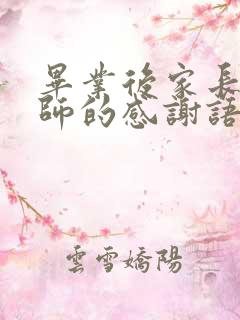 畢業後家長
師的感謝語
雲雪嬌陽